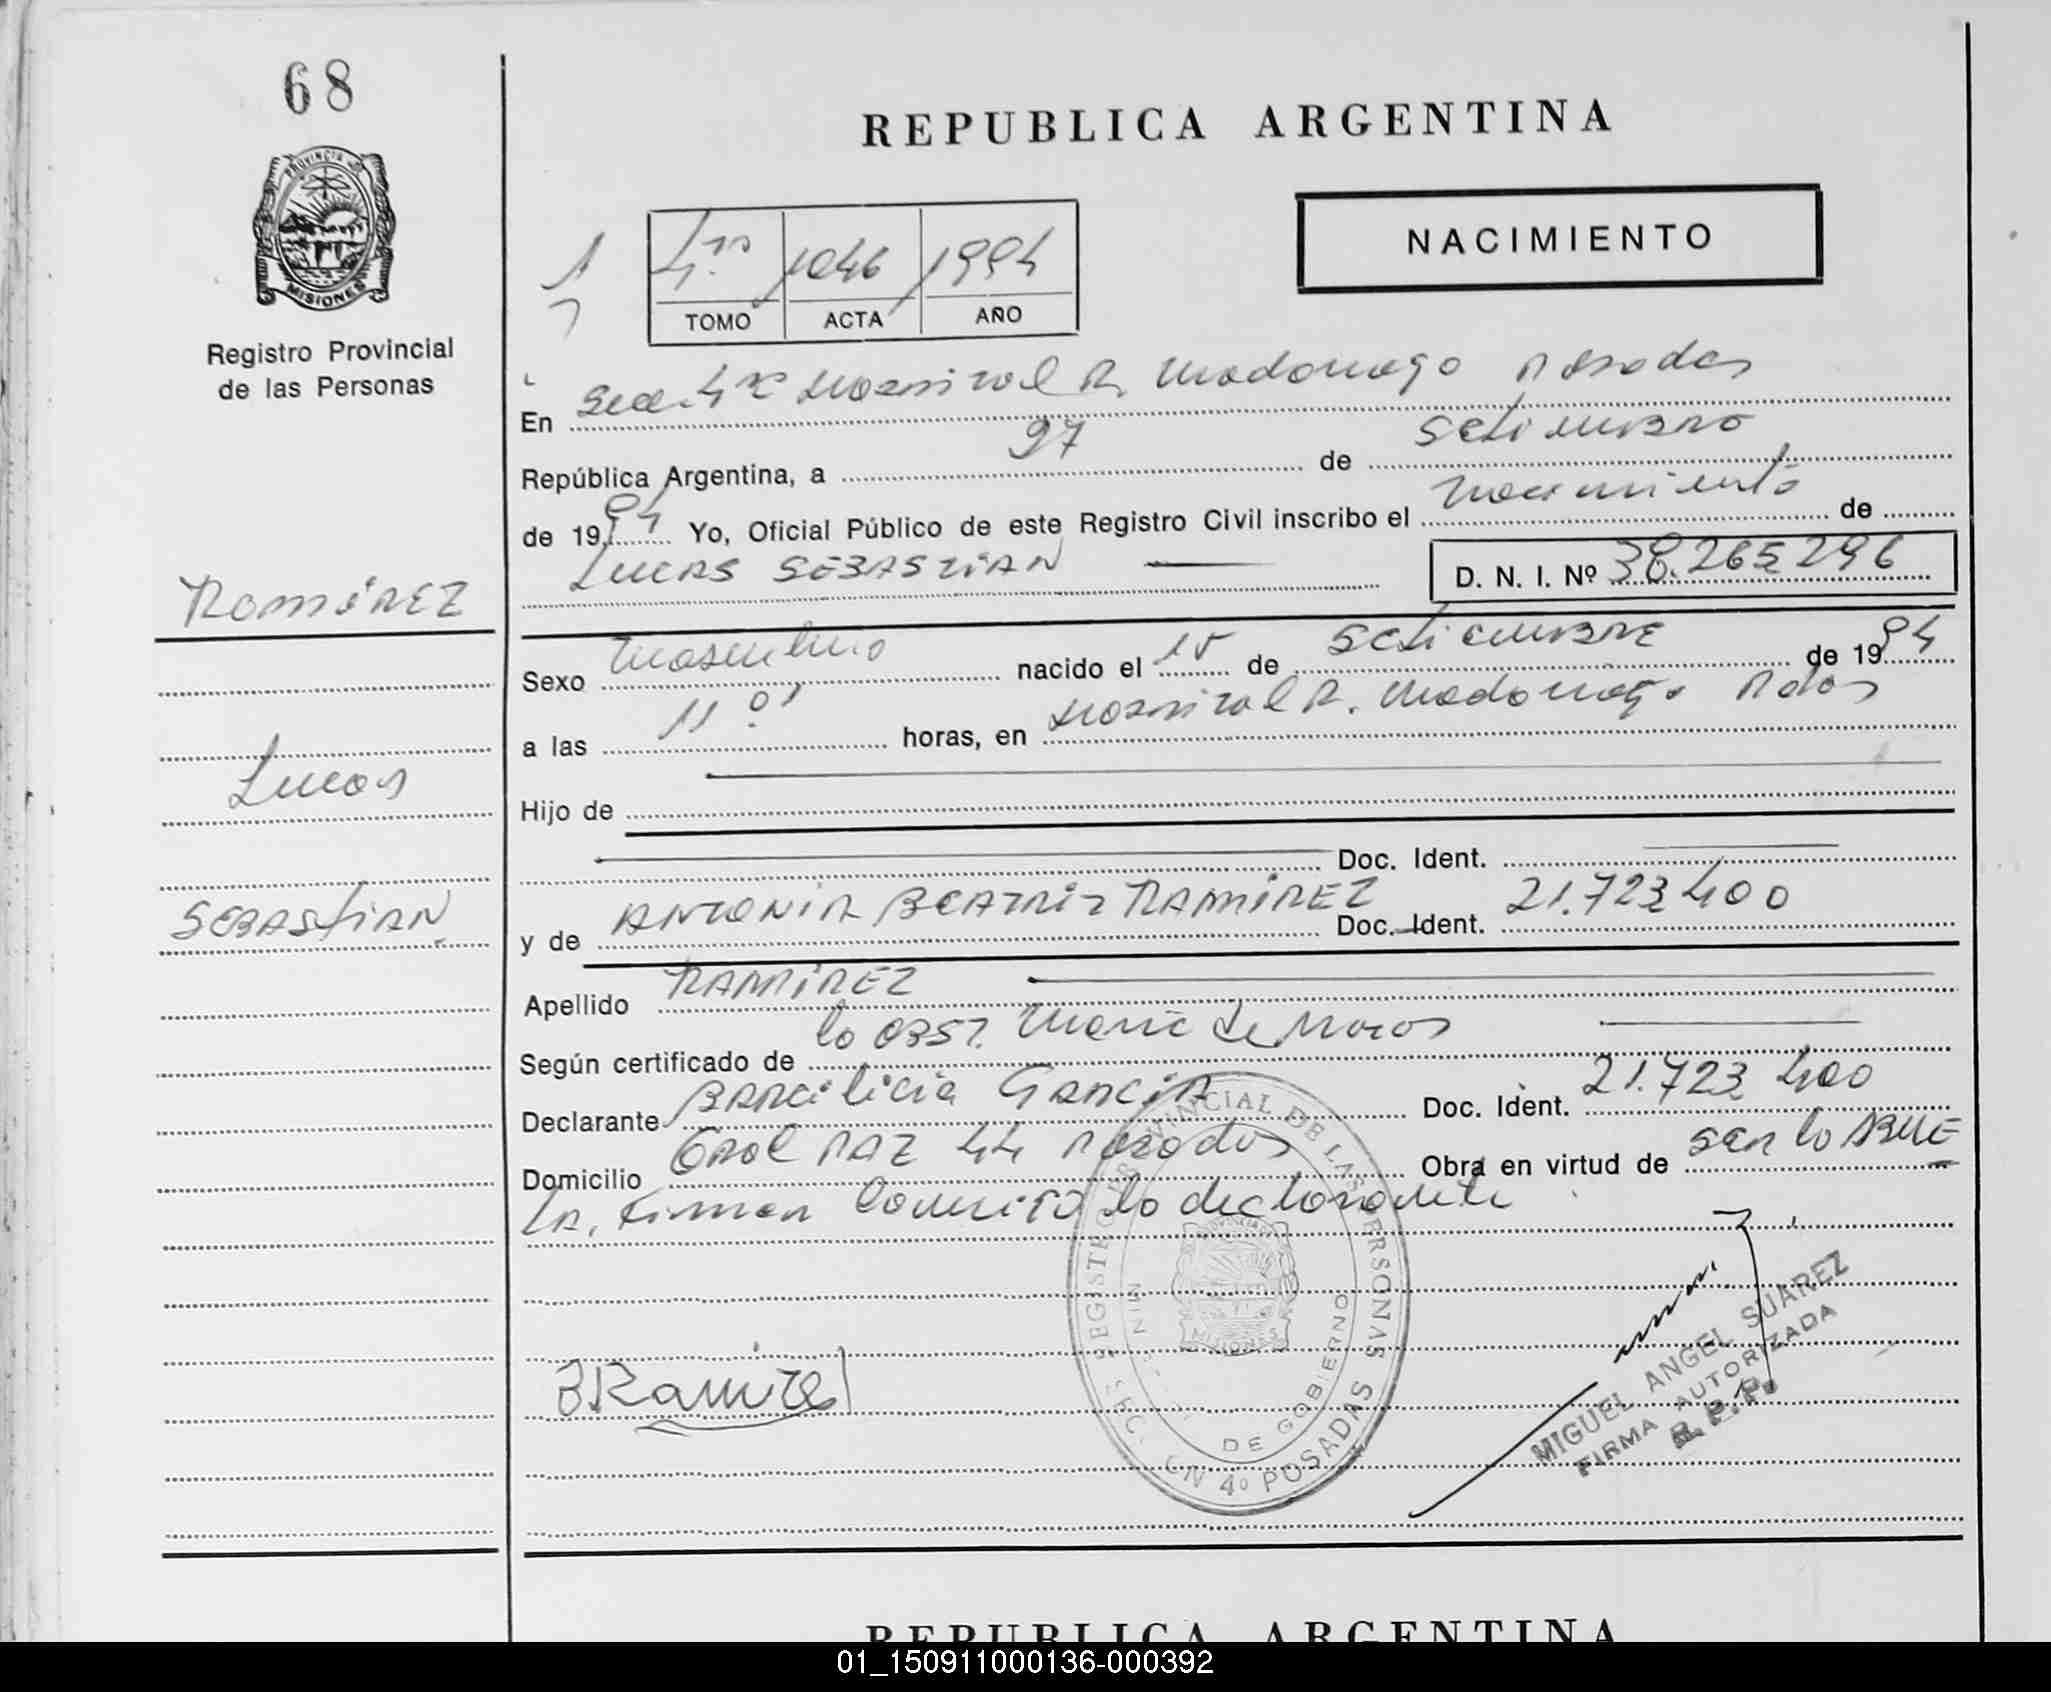 68
REPUBLICA ARGENTINA
NACIMIENTO
PROVINCIA DE
MISIONES
Registro Provincial
de las Personas
1046 1994
TOMO ACTA AÑO
En Sec. 4ta Hospital R. Madariaga Posadas
República Argentina, a 27 de Setiembre
de 1994 Yo, Oficial Público de este Registro Civil inscribo el nacimiento de
LUCAS SEBASTIAN D. N. I. Nº 38.265.296
RAMIREZ
Sexo Masculino nacido el 15 de SETIEMBRE de 1994
a las 11 horas, en Hospital R. Madariaga Pdas
Lucas
Hijo de
Doc. Ident.
SEBASTIAN
y de ANTONIA BEATRIZ RAMIREZ Doc. Ident. 21.723.400
Apellido RAMIREZ
Según certificado de la OBST. Maria de
Declarante GARCIA Doc. Ident. 21.723.400
Domicilio Gral PAZ 44 Posadas Obra en virtud de SER la ABUE
LA. Firman Conmigo la declarante
REGISTRO PROVINCIAL DE LAS PERSONAS
DE GOBIERNO
MISIONES
4º POSADAS
BRamirez
MIGUEL ANGEL SUAREZ
FIRMA AUTORIZADA
R.P.P.
REPUBLICA ARGENTINA
01_150911000136-000392